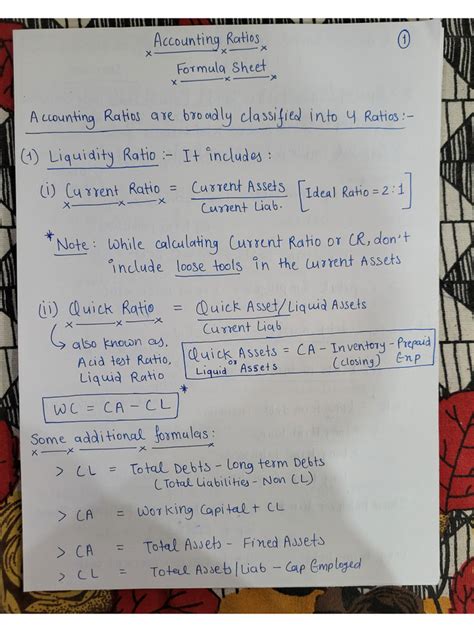 Accounting Ratios
1
Formula Sheet
Accounting Ratios are broadly classified into 4 Ratios:-
(1) Liquidity Ratio :- It includes :
(i) Current Ratio = Current Assets
Current Liab.
[Ideal Ratio = 2:1]
* Note : While calculating Current Ratio or CR, don't
include loose tools in the Current Assets
(ii) Quick Ratio = Quick Asset/Liquid Assets
Current Liab
↳ also known as,
Acid test Ratio,
Liquid Ratio
Quick Assets = CA - Inventory - Prepaid
or
Liquid Assets (closing) Exp
*
WC = CA - CL
Some additional formulas :
> CL = Total Debts - Long term Debts
(Total Liabilities - Non CL)
> CA = Working Capital + CL
> CA = Total Assets - Fixed Assets
> CL = Total Assets/Liab - Cap Employed